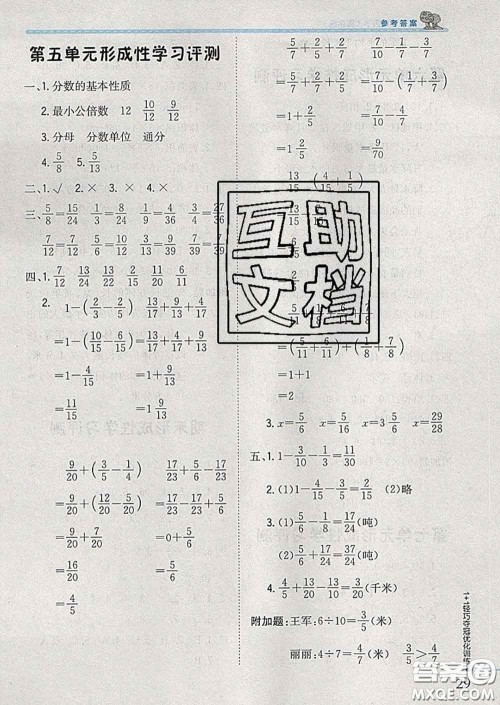 参考答案
第五单元形成性学习评测
一、1.分数的基本性质
2.最小公倍数 12 10/12 9/12
3.分母 分数单位 通分
4. 5/8 5/13
二、1.√ 2.× 3.×
三、5/15 8/15 1/24 9/36 1/4 3/4 27/36
四、1. 7/12 13/24 13/15 2/15 11/20 6/11
2. 1-(2/3-2/5) 13/17+9/13+4/17
=1-(10/15-6/15) =13/17+4/17+9/13
=1-4/15 =1 9/13
=11/15
9/20+(3/5-1/4) 17/23+5/6-17/23
=9/20+7/20 =17/23-17/23+5/6
=16/20 =5/6
=4/5
5/7+1/2+2/7 7/10-1/7-3/7
=5/7+2/7+1/2 =7/10-(1/7+3/7)
=1+1/2 =7/10-4/7
=1 1/2 =9/70
=(5/11+6/11)+(1/8+7/8)
=1+1
=2
3. x=5/6 x=5/6 x=3/5 x=29/28
五、1. 1-3/10-1/3=11/30
2. (1)1-4/15-3/5=2/15 (2)略
3. (1)5/6-1/8=17/24(吨)
(2)5/6+17/24=37/24(吨)
4. 4/5+13/20=29/20(千米)
附加题:王军:6÷10=3/5(米)
丽丽:4÷7=4/7(米) 3/5>4/7
互助
文档
1+1轻巧夺冠优化训练
29
答案圈
MXQE.COM